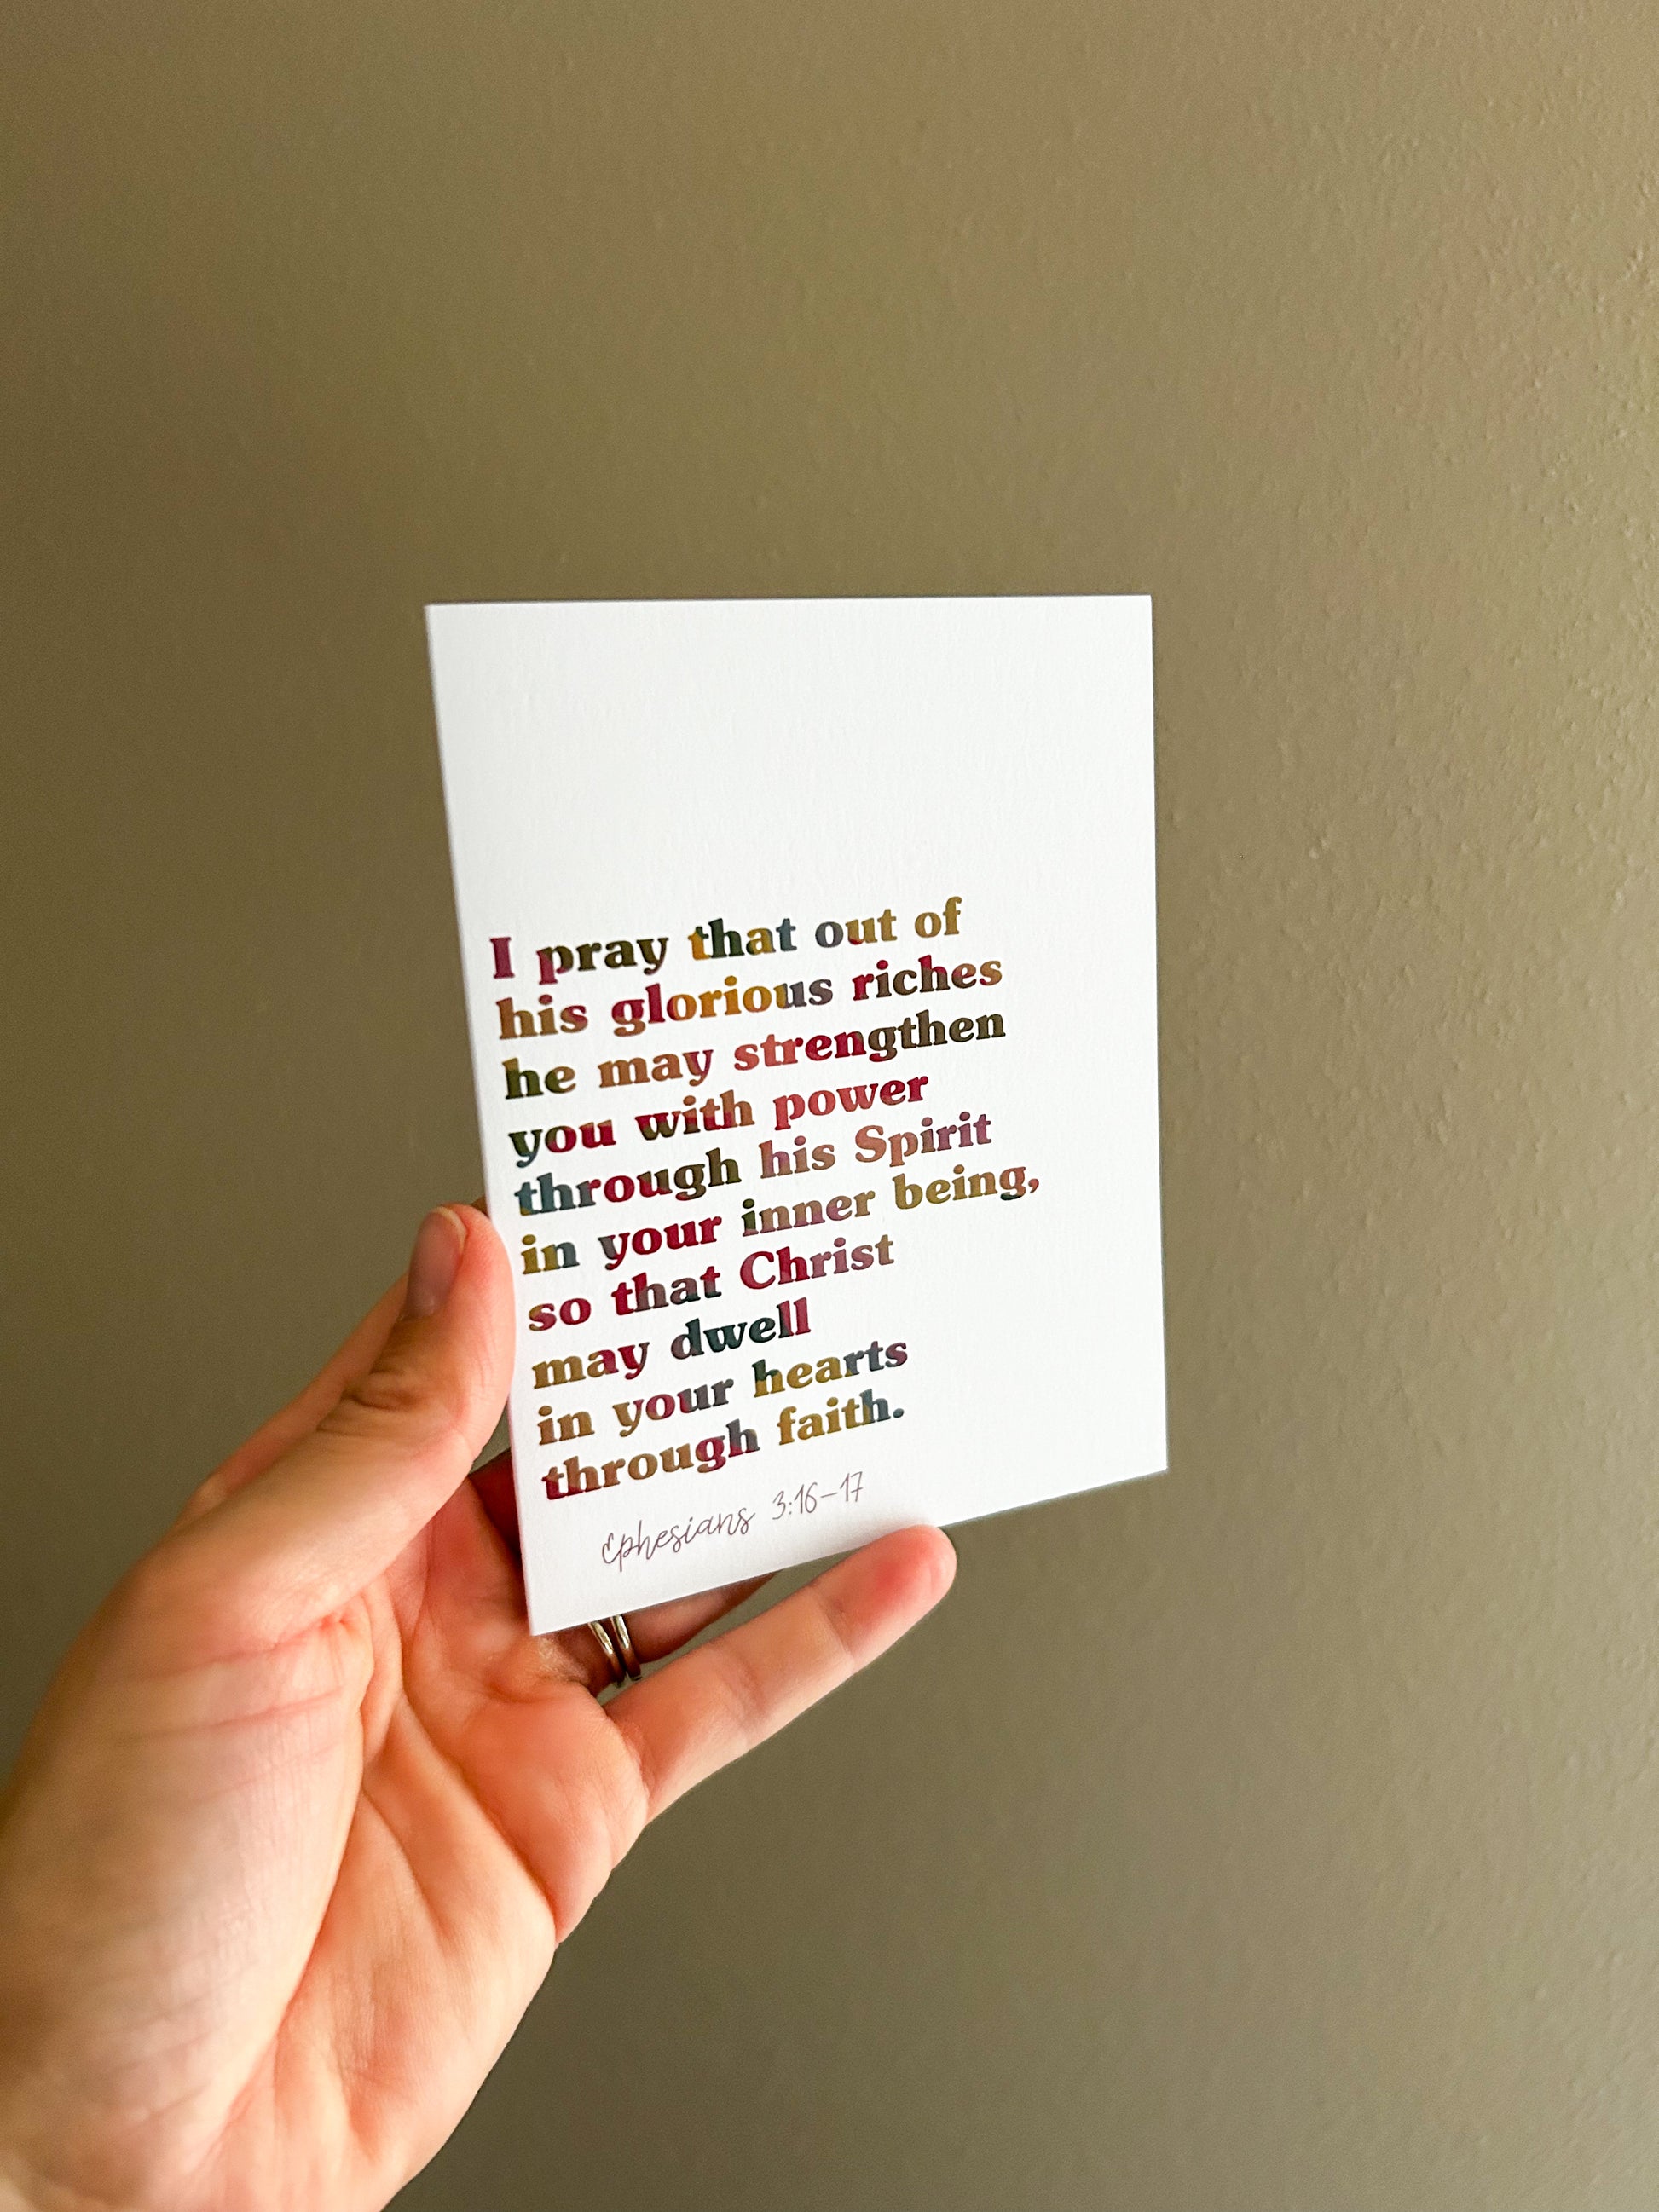 I pray that out of
his glorious riches
he may strengthen
you with power
through his Spirit
in your inner being,
so that Christ
may dwell
in your hearts
through faith.
Ephesians 3:16-17